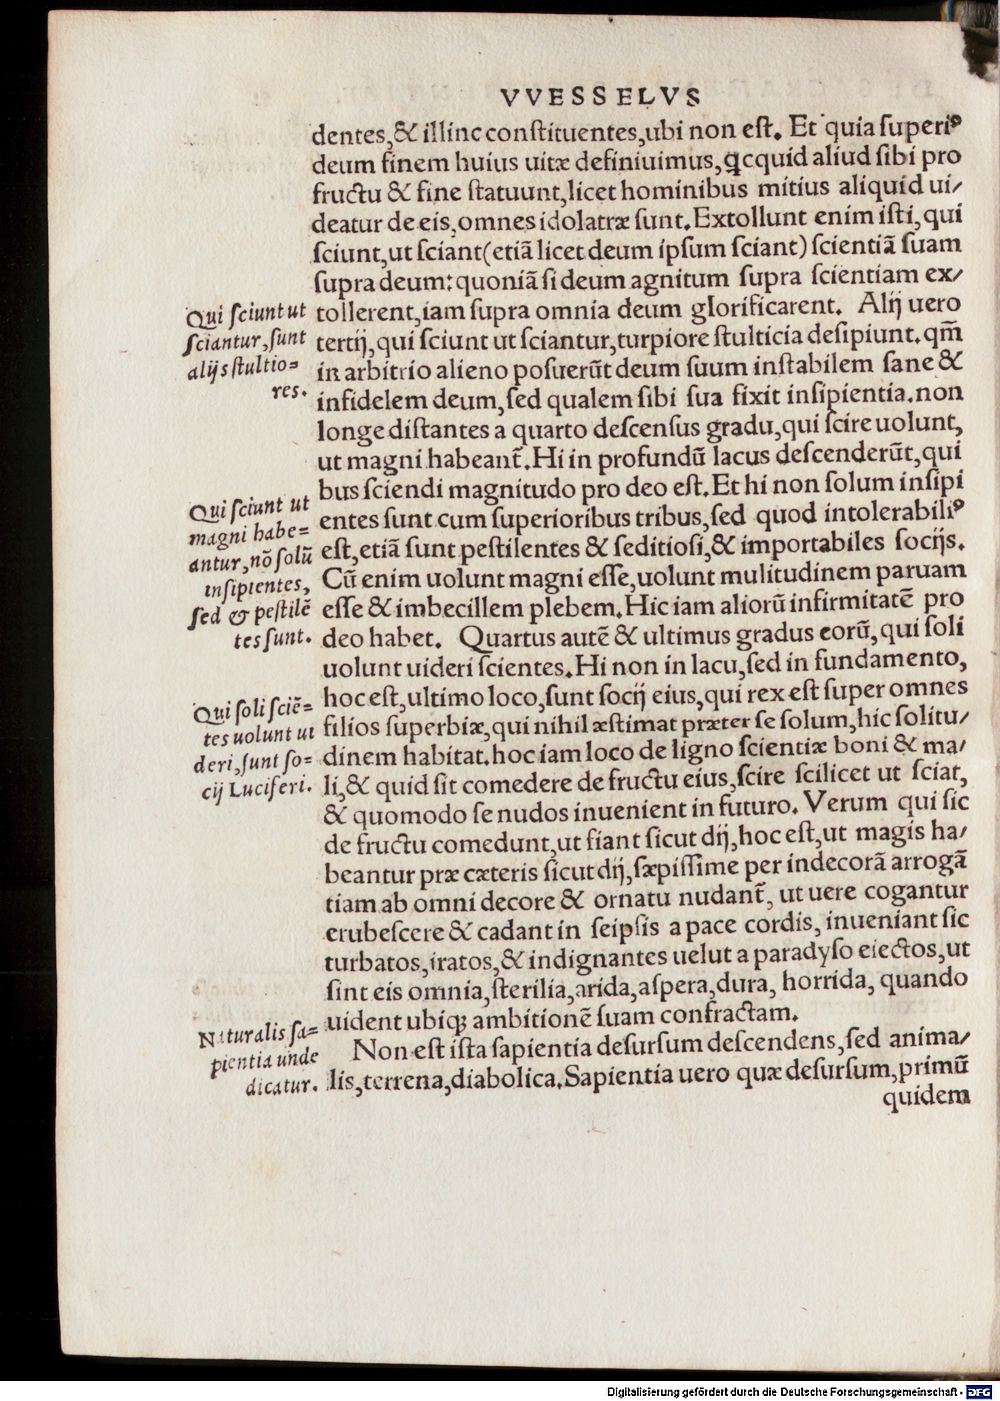 VVESSELVS
dentes,& illinc constituentes,ubi non est. Et quia superiꝰ
deum finem huius uitæ definiuimus,qcquid aliud sibi pro
fructu & fine statuunt,licet hominibus mitius aliquid ui/
deatur de eis,omnes idolatræ sunt.Extollunt enim isti,qui
sciunt,ut sciant(etiã licet deum ipsum sciant) scientiã suam
supra deum: quoniã si deum agnitum supra scientiam ex/
Qui sciunt ut
sciantur,sunt
alijs stultio=
res.
tollerent,iam supra omnia deum glorificarent. Alij uero
tertij,qui sciunt ut sciantur,turpiore stulticia desipiunt.qm̃
in arbitrio alieno posuerũt deum suum instabilem sane &
infidelem deum,sed qualem sibi sua fixit insipientia.non
longe distantes a quarto descensus gradu,qui scire uolunt,
ut magni habeant̃.Hi in profundũ lacus descenderũt,qui
Qui sciunt ut
magni habe=
antur,nõ solũ
insipientes,
sed & pestilẽ
tes sunt.
bus sciendi magnitudo pro deo est.Et hi non solum insipi
entes sunt cum superioribus tribus,sed quod intolerabiliꝰ
est,etiã sunt pestilentes & seditiosi,& importabiles socijs.
Cũ enim uolunt magni esse,uolunt mulitudinem paruam
esse & imbecillem plebem.Hic iam aliorũ infirmitatẽ pro
deo habet. Quartus autẽ & ultimus gradus eorũ,qui soli
uolunt uideri scientes.Hi non in lacu,sed in fundamento,
Qui soli sciẽ=
tes uolunt ui
deri,sunt so=
cij Luciferi.
hoc est,ultimo loco,sunt socij eius,qui rex est super omnes
filios superbiæ,qui nihil æstimat præter se solum,hic solitu/
dinem habitat.hoc iam loco de ligno scientiæ boni & ma/
li,& quid sit comedere de fructu eius,scire scilicet ut sciat,
& quomodo se nudos inuenient in futuro. Verum qui sic
de fructu comedunt,ut fiant sicut dij,hoc est,ut magis ha/
beantur præ cæteris sicut dij,sæpissime per indecorã arrogã
tiam ab omni decore & ornatu nudant̃, ut uere cogantur
erubescere & cadant in seipsis a pace cordis, inueniant sic
turbatos,iratos,& indignantes uelut a paradyso eiectos,ut
sint eis omnia,sterilia,arida,aspera,dura, horrida, quando
uident ubiqꝫ ambitionẽ suam confractam.
Naturalis sa=
pientia unde
dicatur.
Non est ista sapientia desursum descendens,sed anima/
lis,terrena,diabolica.Sapientia uero quæ desursum,primũ
quidem
Digitalisierung gefördert durch die Deutsche Forschungsgemeinschaft - DFG